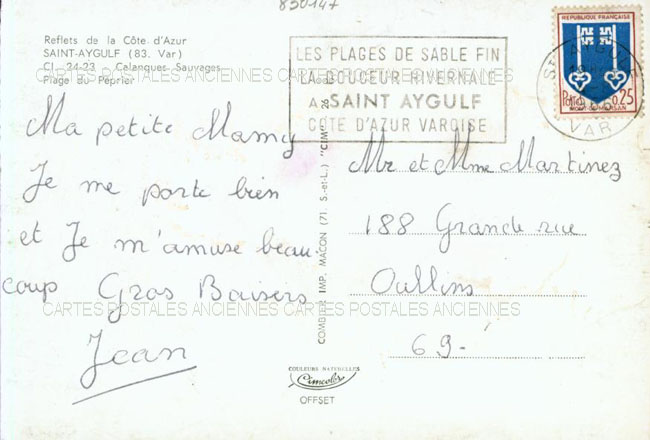 830147
Reflets de la Côte d'Azur
SAINT-AYGULF (83. Var)
Cl. 24-23 - Calanques Sauvages
Plage du Péprier
LES PLAGES DE SABLE FIN
LA DOUCEUR HIVERNALE
A SAINT AYGULF
COTE D'AZUR VAROISE
REPUBLIQUE FRANÇAISE
Postes 0,25
MONT-DE-MARSAN
VAR
CARTES POSTALES ANCIENNES CARTES POSTALES ANCIENNES
Ma petite Mamy
Je me porte bien
et Je m'amuse beau-
coup Gros Baisers
Jean
COMBIER IMP. MACON (71. S.-et-L.) "CIM"
Mr et Mme Martinez
188 Grande rue
Oullins
69-
CARTES POSTALES ANCIENNES CARTES POSTALES ANCIENNES
COULEURS NATURELLES
Cimcolor
OFFSET